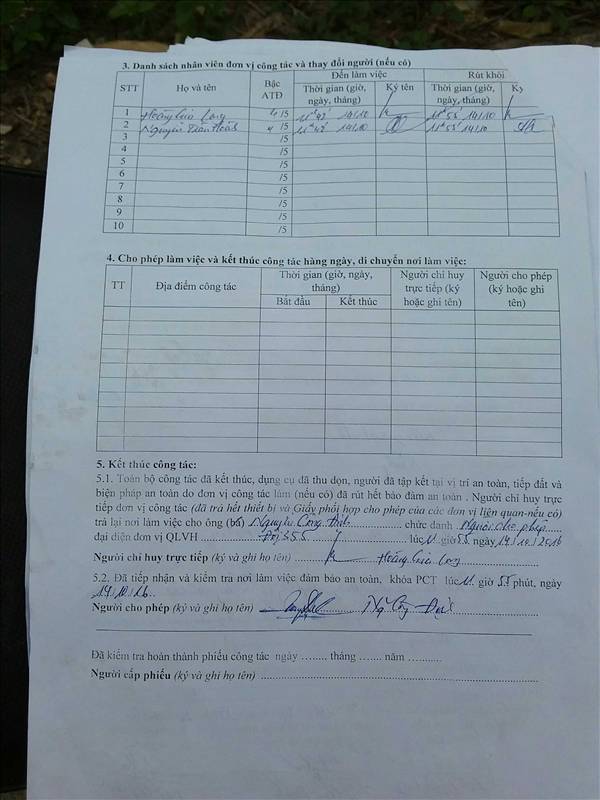 3. Danh sách nhân viên đơn vị công tác và thay đổi người (nếu có)
STT Họ và tên Bậc ATĐ Đến làm việc Rút khỏi
Thời gian (giờ, ngày, tháng) Ký tên Thời gian (giờ, ngày, tháng) Ký
1 Hoàng Long 4/5 11h42' 14/10 11h55' 14/10
2 Nguyễn 4/5 11h42' 14/10 11h55' 14/10
3 /5
4 /5
5 /5
6 /5
7 /5
8 /5
9 /5
10 /5
4. Cho phép làm việc và kết thúc công tác hàng ngày, di chuyển nơi làm việc:
TT Địa điểm công tác Thời gian (giờ, ngày, tháng) Người chỉ huy trực tiếp (ký hoặc ghi tên) Người cho phép (ký hoặc ghi tên)
Bắt đầu Kết thúc
5. Kết thúc công tác:
5.1. Toàn bộ công tác đã kết thúc, dụng cụ đã thu dọn, người đã tập kết tại vị trí an toàn, tiếp đất và
biện pháp an toàn do đơn vị công tác làm (nếu có) đã rút hết bảo đảm an toàn . Người chỉ huy trực
tiếp đơn vị công tác (đã trả hết thiết bị và Giấy phối hợp cho phép của các đơn vị liên quan-nếu có)
trả lại nơi làm việc cho ông (bà) Nguyễn Công chức danh Người cho phép
đại diện đơn vị QLVH lúc 11 giờ 55 ngày 14/10/2016
Người chỉ huy trực tiếp (ký và ghi họ tên) Hoàng Long
5.2. Đã tiếp nhận và kiểm tra nơi làm việc đảm bảo an toàn, khóa PCT lúc 11 giờ 55 phút, ngày
14.10.16
Người cho phép (ký và ghi họ tên) Ng Công
Đã kiểm tra hoàn thành phiếu công tác ngày ........ tháng ...... năm ..........
Người cấp phiếu (ký và ghi họ tên)